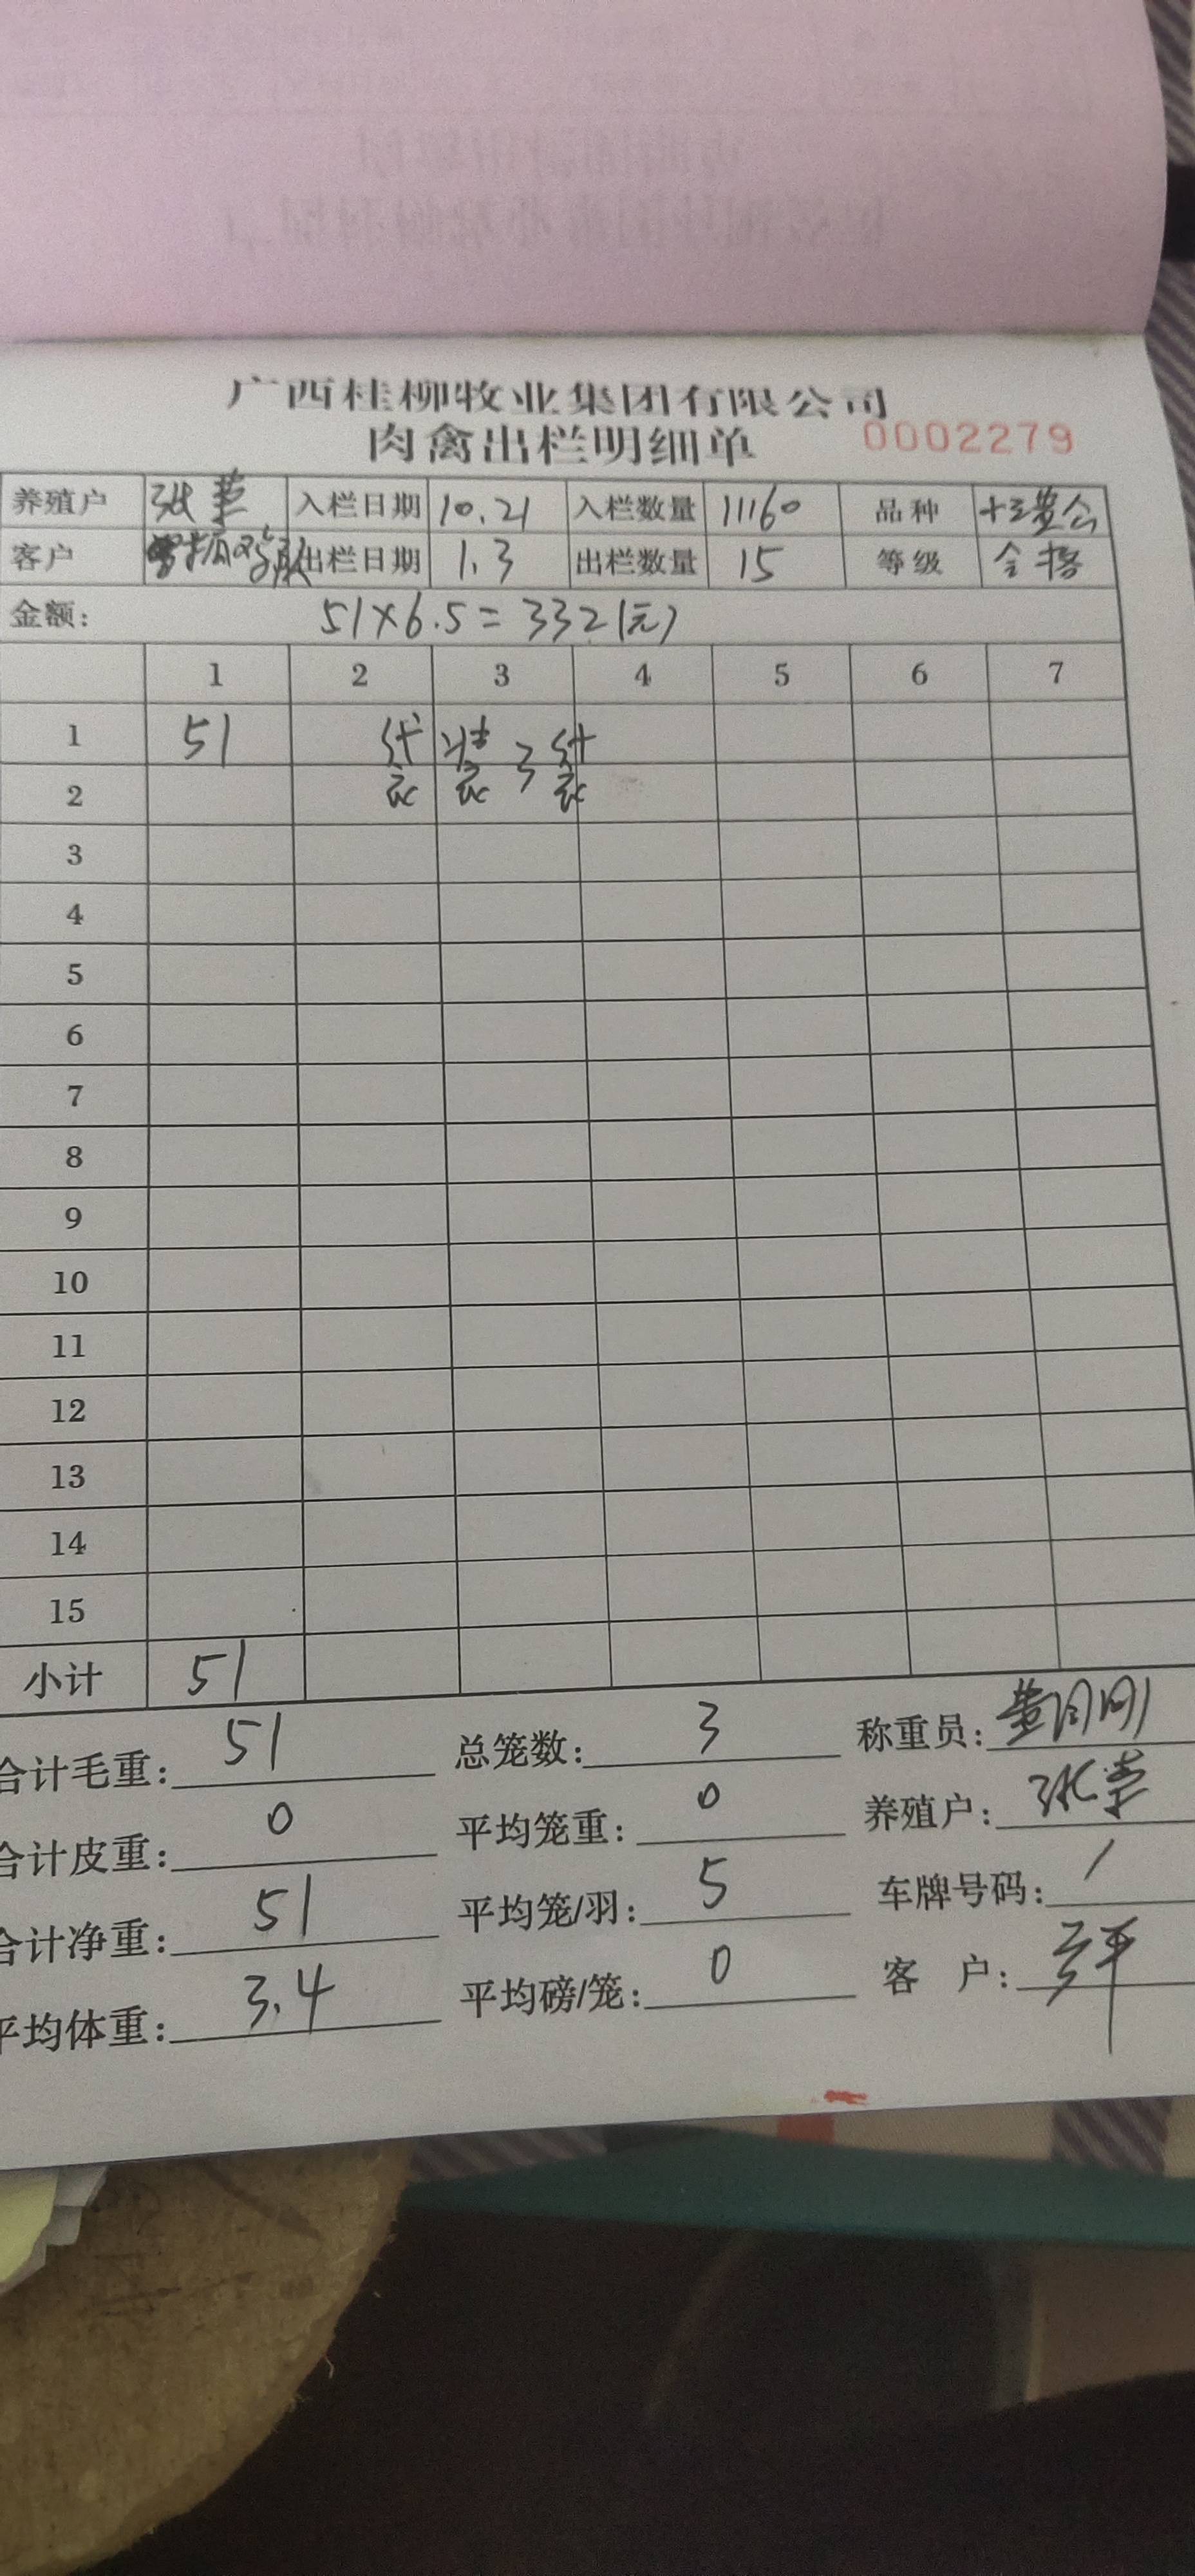 广西桂柳牧业集团有限公司
肉禽出栏明细单 0002279
养殖户 张 入栏日期 10.21 入栏数量 11160 品种
客户 出栏日期 1.3 出栏数量 15 等级 合格
金额: 51×6.5=332(元)
1 2 3 4 5 6 7
1 51
2
3
4
5
6
7
8
9
10
11
12
13
14
15
小计 51
合计毛重: 51 总笼数: 3 称重员:
合计皮重: 0 平均笼重: 0 养殖户: 张
合计净重: 51 平均笼/羽: 5 车牌号码: /
平均体重: 3.4 平均磅/笼: 0 客 户: